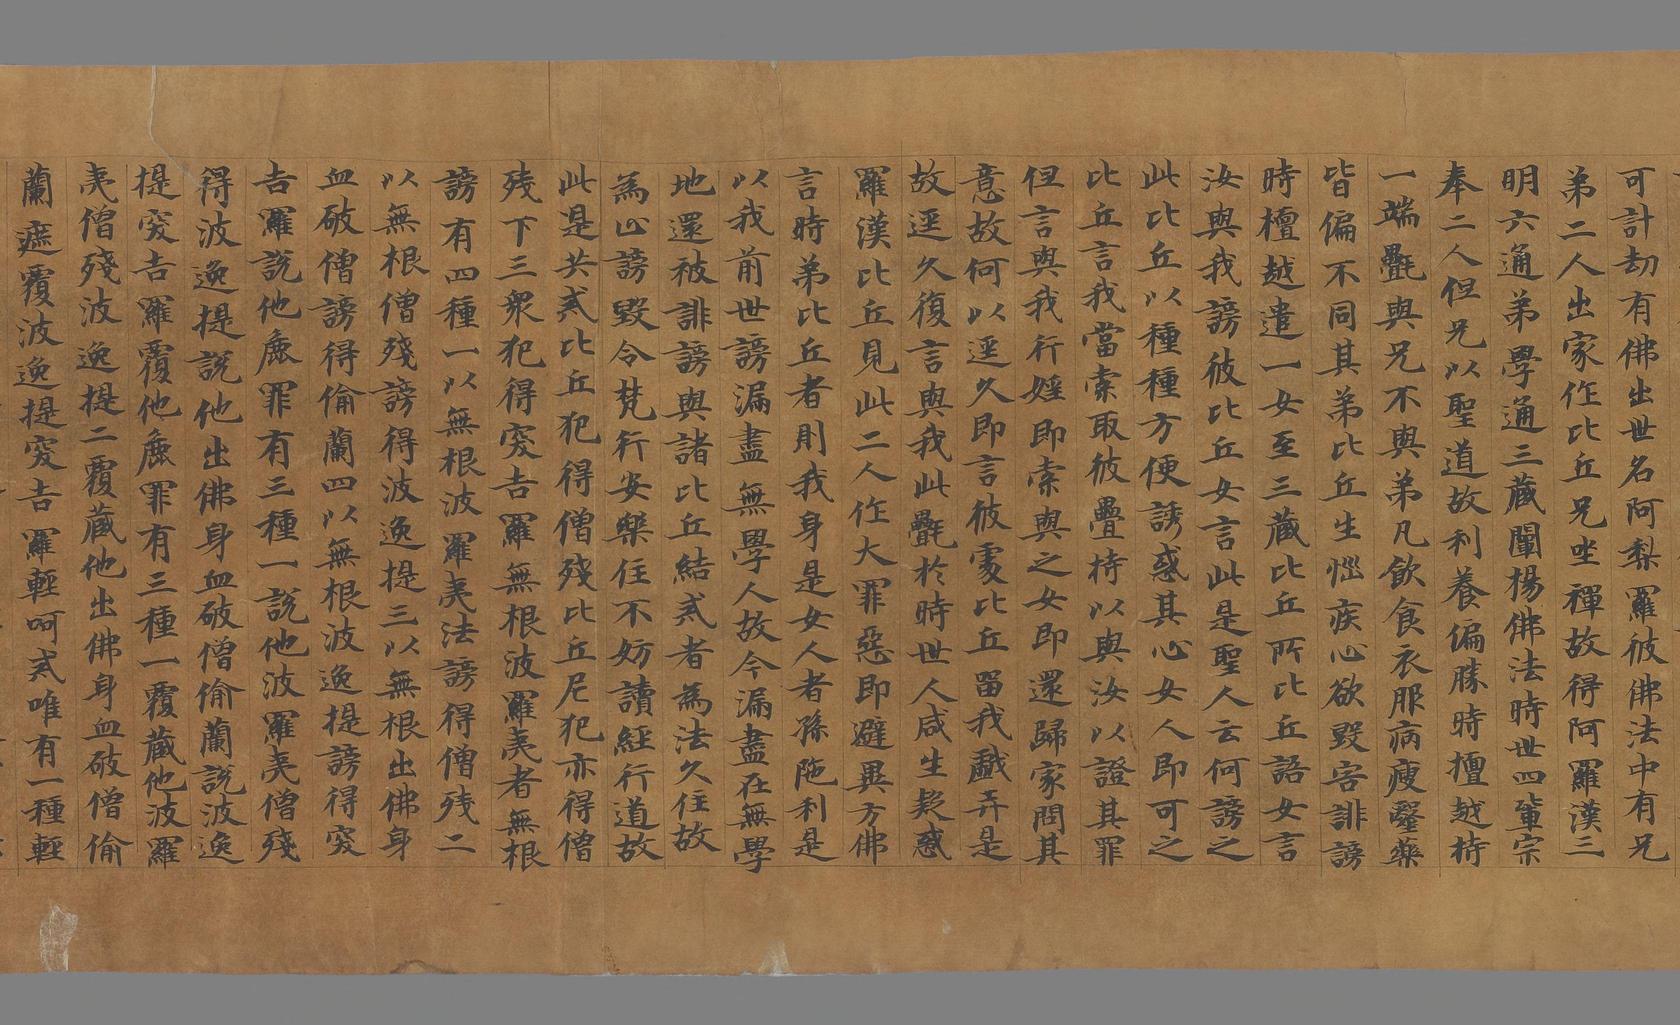 可計劫有佛出世名阿梨羅彼佛法中有兄
弟二人出家作比丘兄坐禪故得阿羅漢三
明六通弟學通三藏闡揚佛法時世四輩宗
奉二人但兄以聖道故利養偏勝時檀越持
一端㲲與兄不與弟凡飲食衣服病瘦醫藥
皆偏不同其弟比丘生惱疾心欲毀害誹謗
時檀越遣一女至三藏比丘所比丘語女言
汝與我謗彼比丘女言此是聖人云何謗之
此比丘以種種方便誘惑其心女人即可之
比丘言我當索取彼疊持以與汝以證其罪
但言與我行婬即索與之女即還歸家問其
意故何以逕久即言彼處比丘留我戲弄是
故逕久復言與我此㲲於時世人咸生疑惑
羅漢比丘見此二人作大罪惡即避異方佛
言時弟比丘者則我身是女人者孫陁利是
以我前世謗漏盡無學人故今漏盡在無學
地還被誹謗與諸比丘結戒者為法久住故
為止謗毀令梵行安樂住不妨讀經行道故
此是共戒比丘犯得僧殘比丘尼犯亦得僧
殘下三衆犯得突吉羅無根波羅夷者無根
謗有四種一以無根波羅夷法謗得僧殘二
以無根僧殘謗得波逸提三以無根出佛身
血破僧謗得偷蘭四以無根波逸提謗得突
吉羅說他麁罪有三種一說他波羅夷僧殘
得波逸提說他出佛身血破僧偷蘭說波逸
提突吉羅覆他麁罪有三種一覆藏他波羅
夷僧殘波逸提二覆藏他出佛身血破僧偷
蘭遮覆波逸提突吉羅輕呵戒唯有一種輕